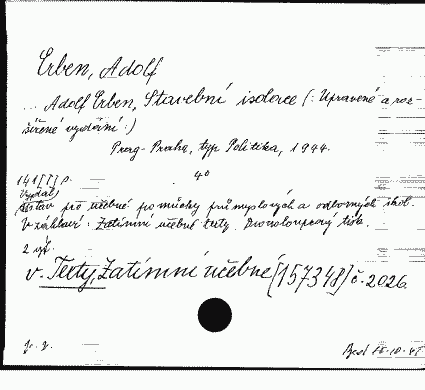 Erben, Adolf
... Adolf Erben, Stavební isolace (: Upravené a roz-
šířené vydání :)
Prag-Praha, typ. Politika, 1944.
4°
141577 p.
Vydal)
Ústav pro učebné pomůcky průmyslových a odborných škol.
V záhlaví: Zatímní učebné texty. Dvousloupcový tisk.
2 výt.
v. Texty, Zatímní učebné [157348] č. 2026.